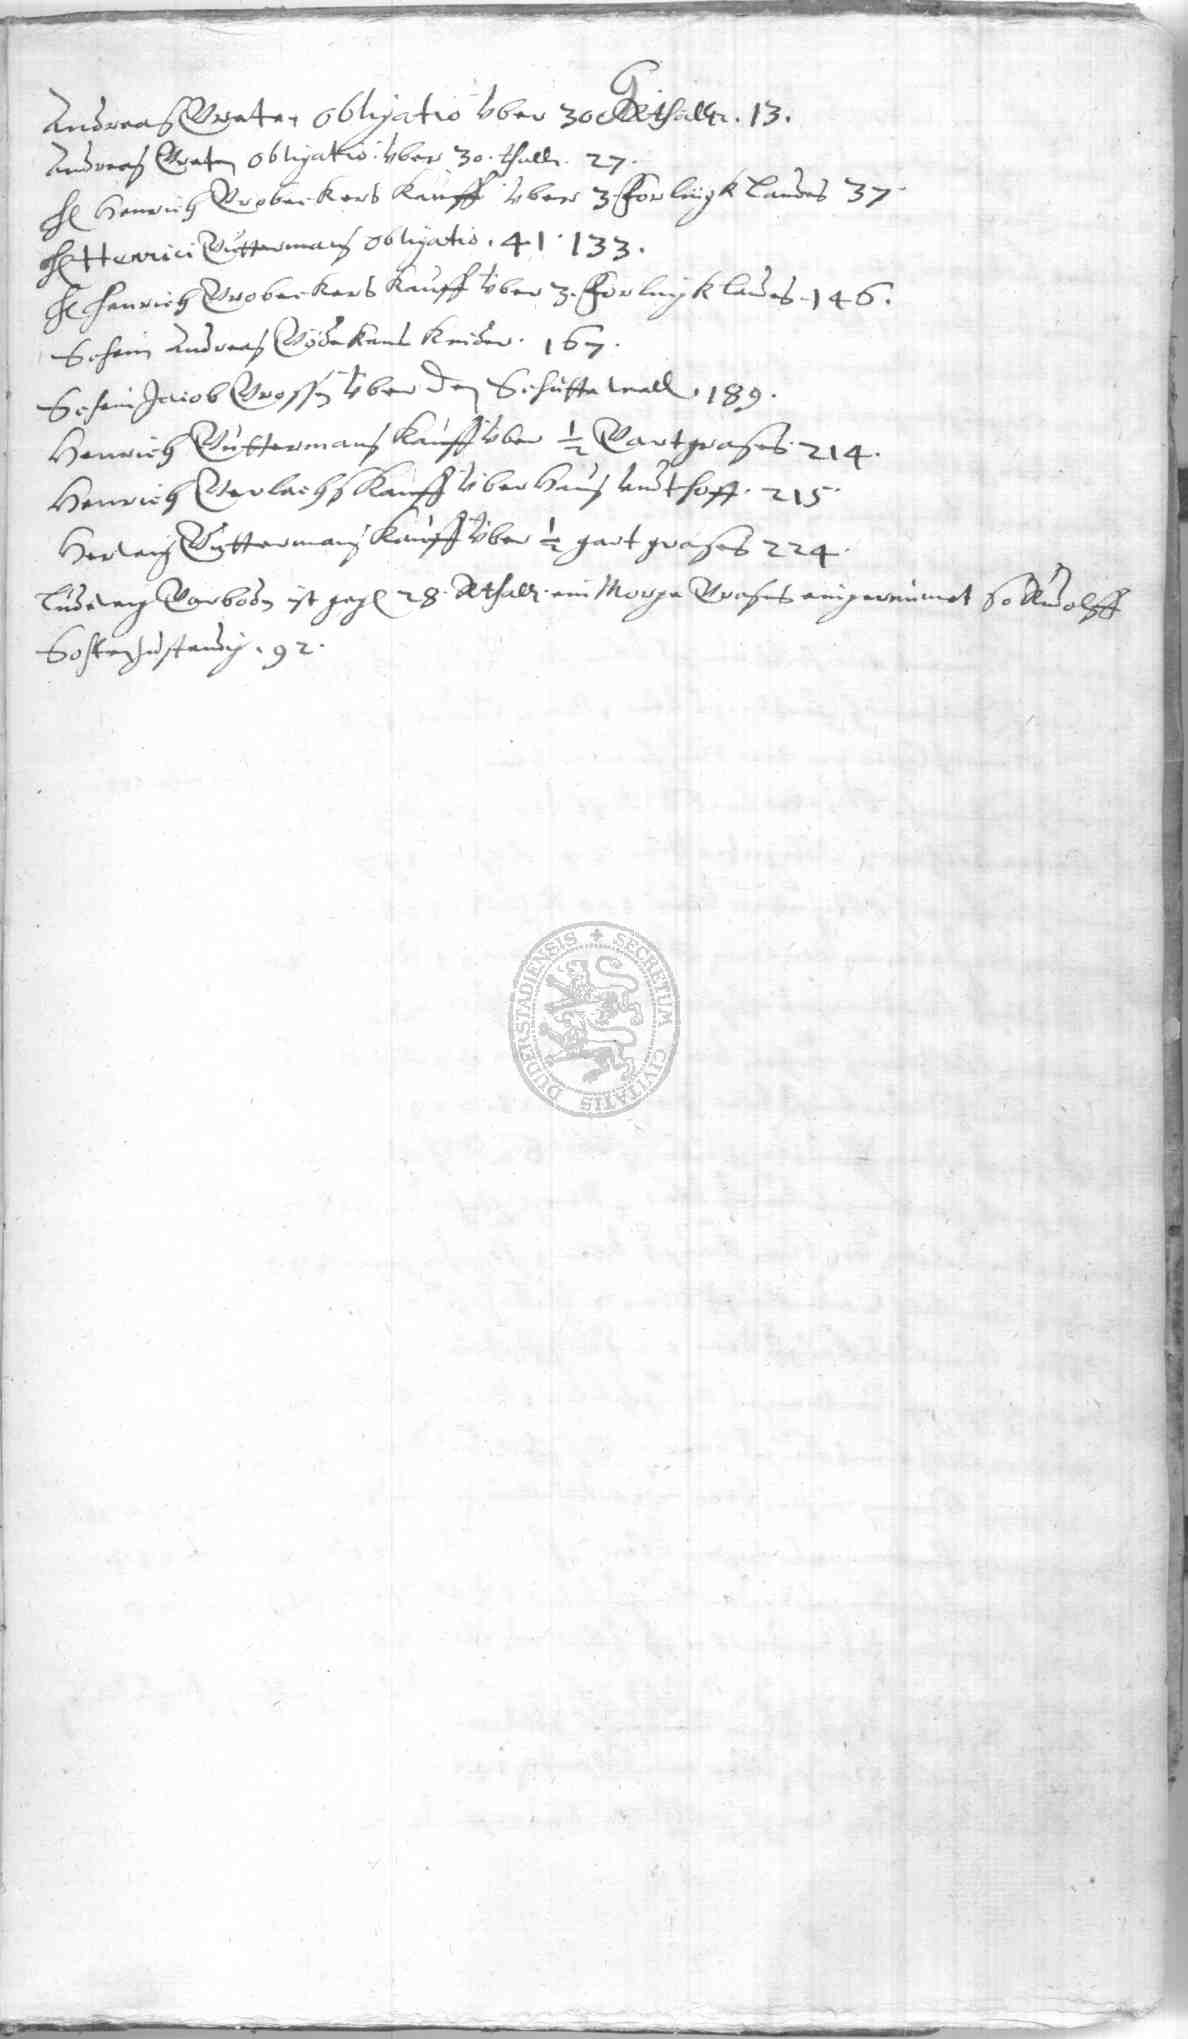 G
Andreas Graten obligatio über 30 Rthallr. 13.
Andreas Graten obligatio über 30. thallr. 27.
H Henrich Grobeckers Kauff über 3 Forlingk Landes 37.
H Henrici Guttermans obligatio. 41. 133.
H Henrich Grobeckers Kauff über 3. Forlingk Landes. 146.
Schein Andreas Kinder. 167.
Schein Jacob Grossen über den Schüttewall. 189.
Henrich Guttermans Kauff über ½ Gartgrases. 214.
Henrich Gerlachs Kauff über Haus undt hoff. 215.
Guttermans Kauff über ½ gartgrases 224.
Ludewig ist gegen 28. Rthallr. ein Morge Grases eingereumet so Rudolff
zustendig. 92.
SECRETUM CIVITATIS DUDERSTADIENSIS